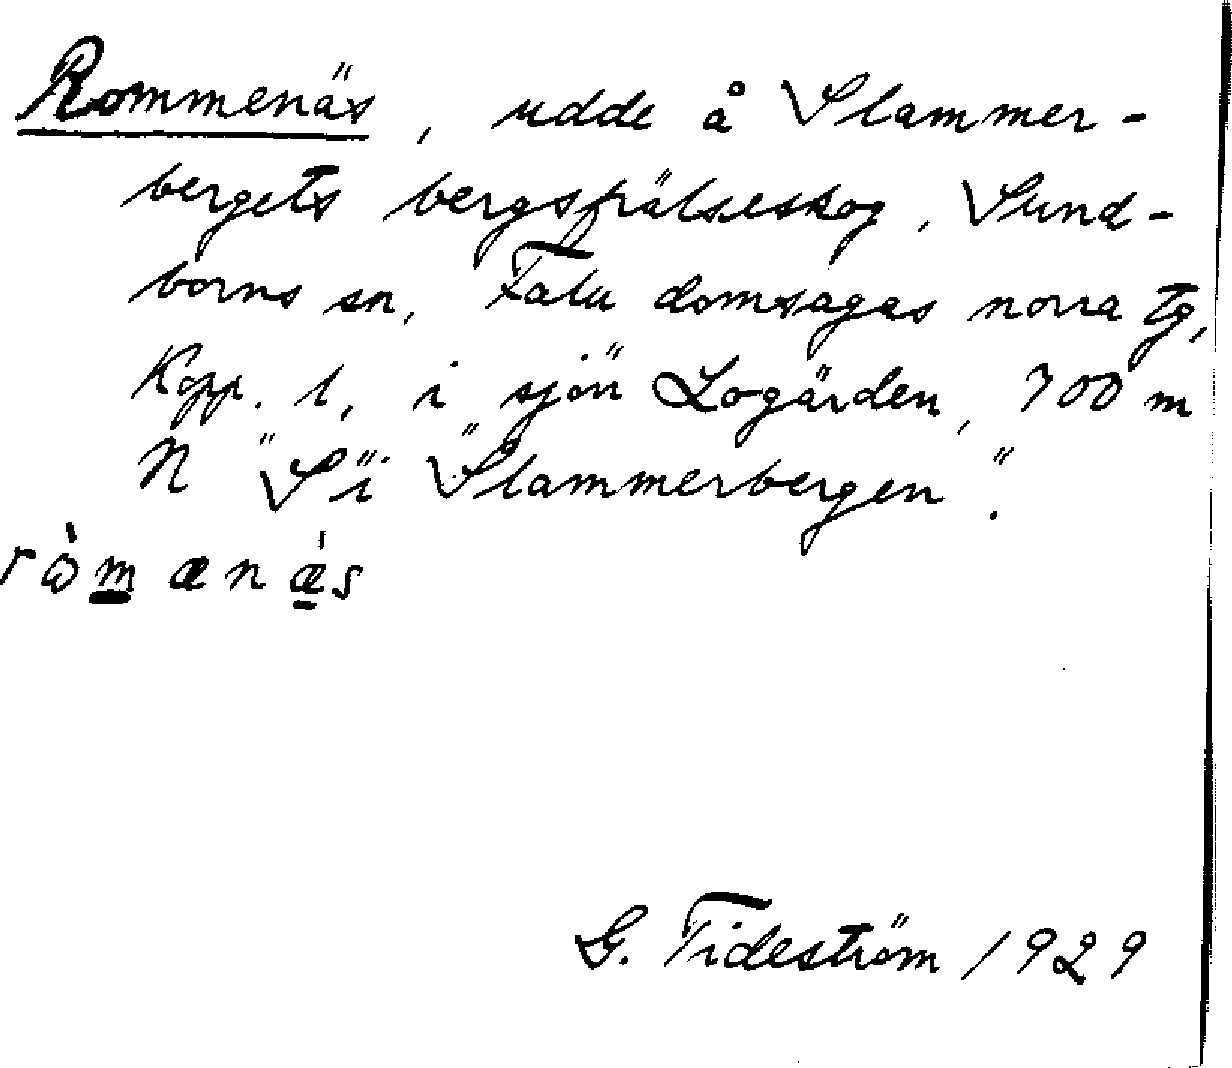 Rommenäs, udde å Slammer-
bergets bergsfrälseskog, Sund-
borns sn, Falu domsagas norra tg,
Kopp. l, i sjön Logärden, 700 m
N "S i Slammerbergen".
ròmanä́s
G. Tideström 1929